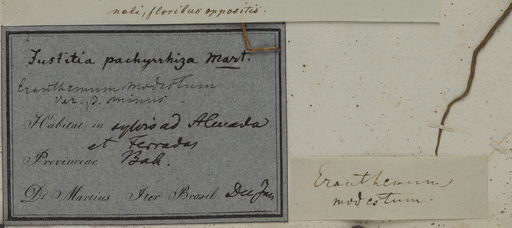 nali, floribus oppositis.
Justitia pachyrrhiza Mart.
Eranthemum modestum
var. β. minus
Habitat in sylvis ad Almada
et Ferradas
Provinciae Bah.
Dr Martius Iter Brasil. Dec Jan
Eranthemum
modestum.